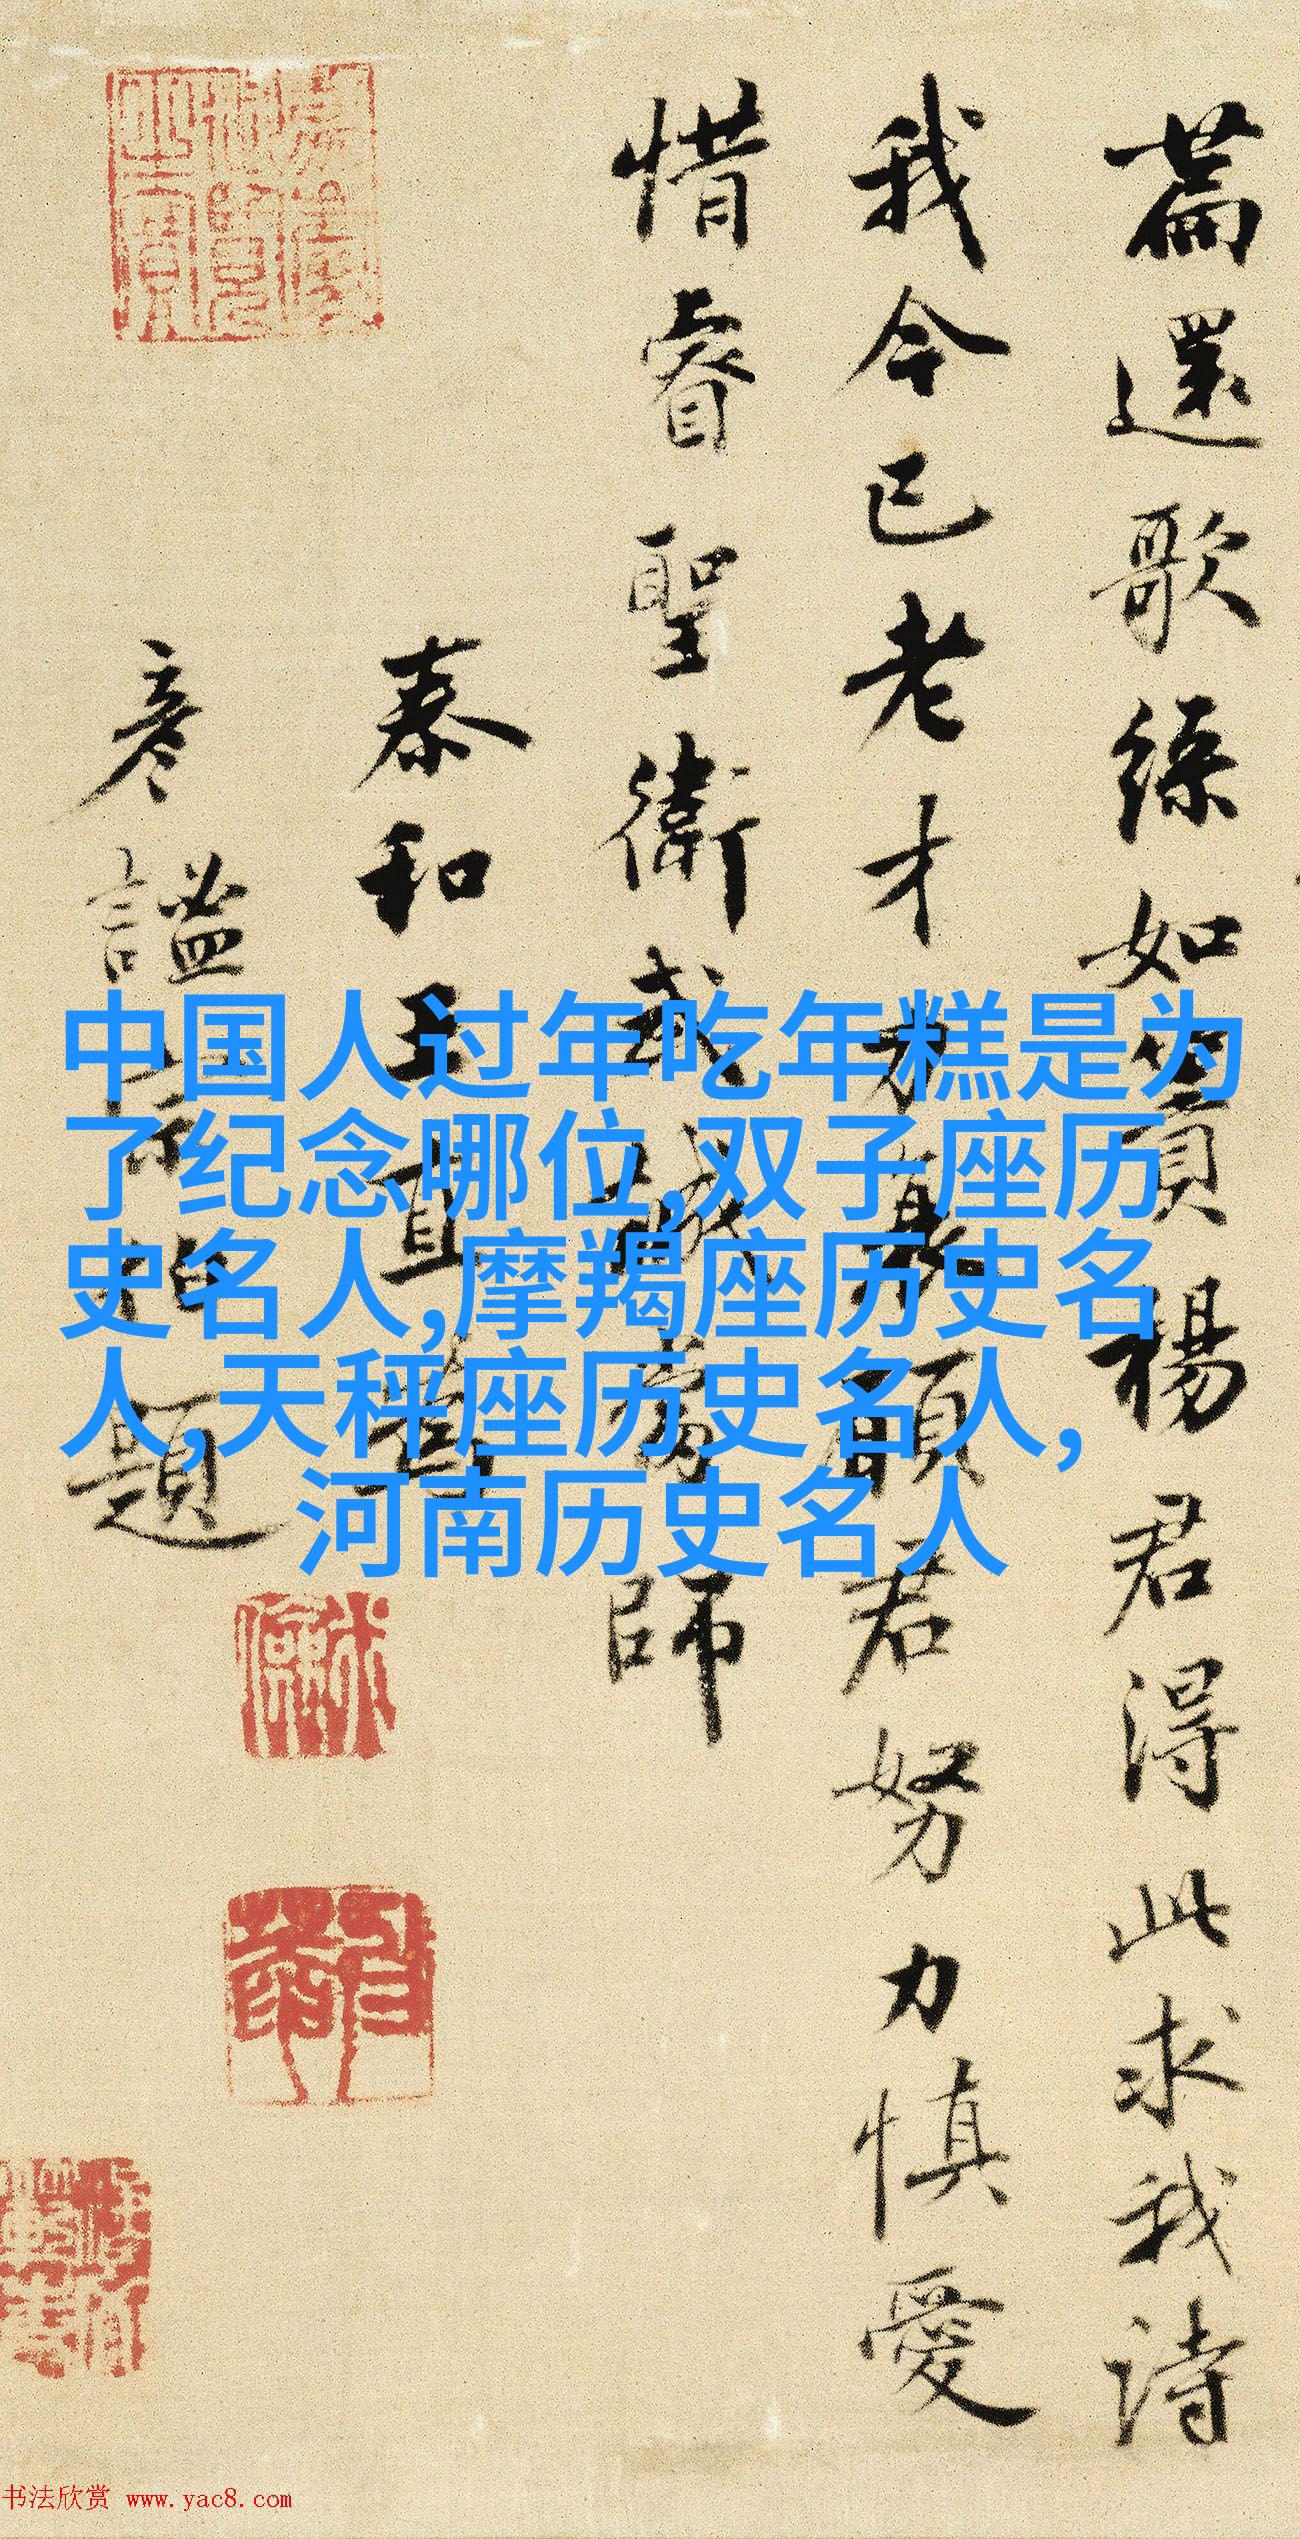 篇還歌綠如賓楊君得此求我詩
我今已老才力衰願君努力慎愛
惜睿聖衛武誠當師
泰和王直書
彥謐宗伯題
中国人过年吃年糕是为
了纪念哪位,双子座历
史名人,摩羯座历史名
人,天秤座历史名人,
河南历史名人
书法欣赏 www.yac8.com